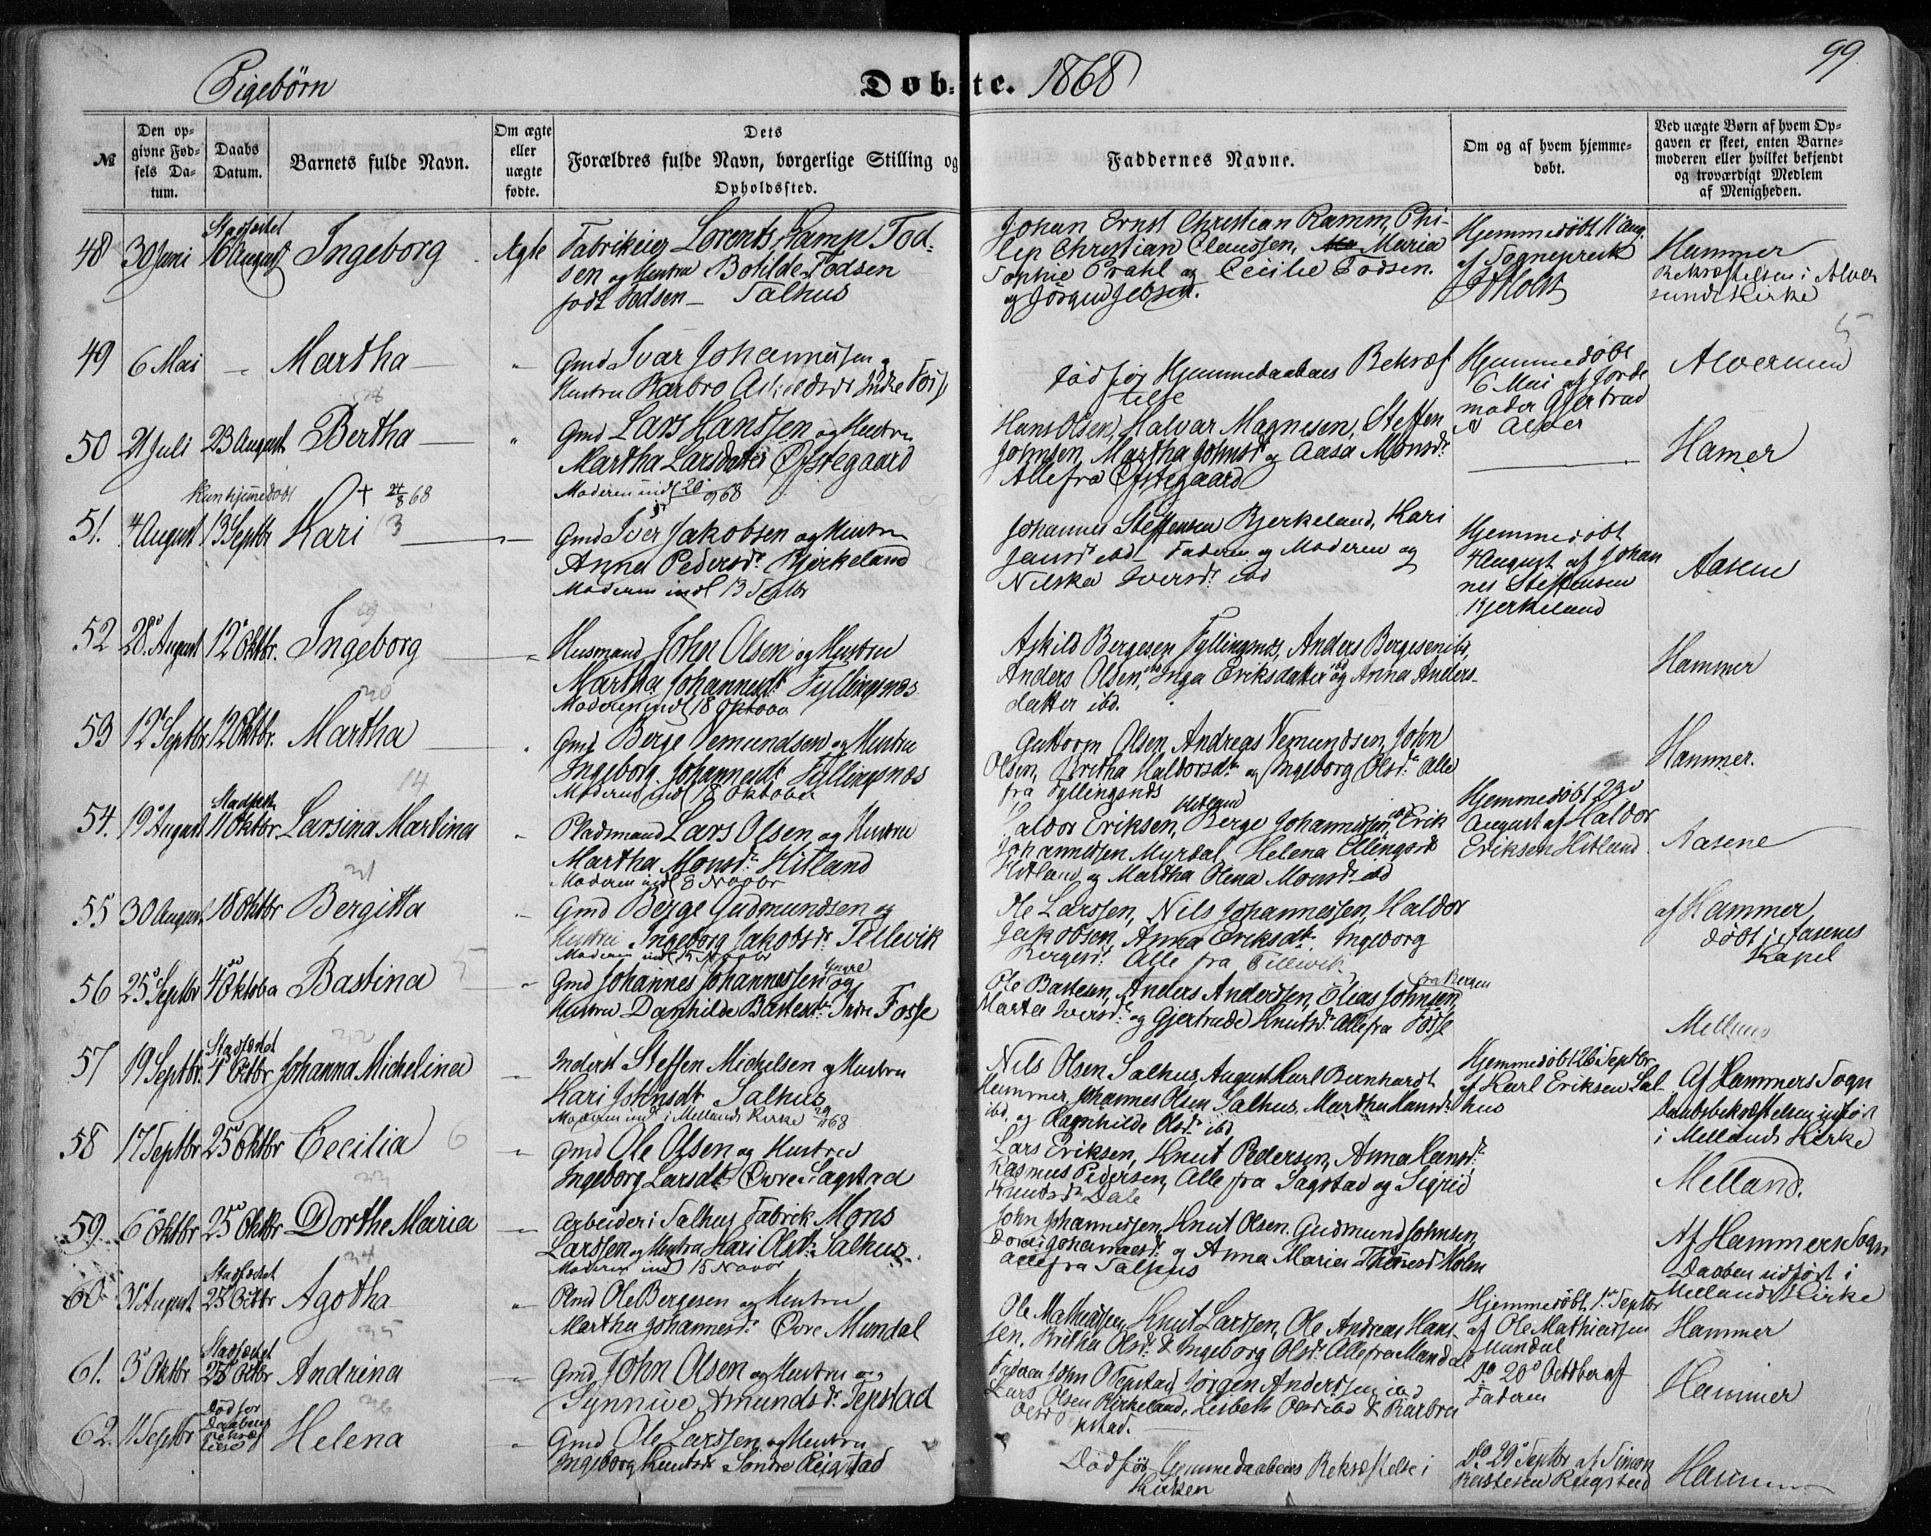 Pigebørn
Døbte. 1868
99
№
Den op-
givne Fød-
sels Da-
tum.
Daabs
Datum.
Barnets fulde Navn.
Om ægte
eller
uægte
fødte.
Dets
Forældres fulde Navn, borgerlige Stilling og
Opholdssted.
Faddernes Navne.
Om og af hvem hjemme-
døbt.
Ved uægte Børn af hvem Op-
gaven er skeet, enten Barne-
moderen eller hvilket bekjendt
og troværdigt Medlem
af Menigheden.
48 30 Juni Stadfæstet 16 August Ingeborg Ægte
Fabrikeier Lorents Kamp Tod-
sen og Hustru Botilde Todsen
født Todsen — Salhus
Johan Ernst Christian Ramm, Phi-
lip Christian Claussen, Maria
Sophie Prahl og Cecilie Todsen.
og Jørgen Jebsen.
Hjemmedøbt 11 Aug.
af Sogneprest
Holst
Hammer
Bekræftelsen i Alver
sunds Kirke
49 6 Mai — Martha —
Gmd Ivar Johannessen og
Hustru Barbro Askildsdr Indre Fosse
død før Hjemmedaabens Bekræf
telse
Hjemmedøbt
6 Mai af Jorde
moder Gjertrud
Alver
Alversund
50 21 Juli 23 August Bertha —
Gmd Lars Hanssen og Hustru
Martha Larsdatter Øfstegaard
Moderen indl 20/9 68
Hans Olsen, Halvar Magnesen, Steffen
Johnsen, Martha Johnsdr og Aasa Monsdr
Alle fra Øfstegaard
Hamer
51. 4 August Kun hjemmedøbt 13 Septbr Kari + 24/8 68
Gmd Iver Jakobsen og Hustru
Anna Pedersdr Bjerkeland
Moderen indl 13 Septbr
Johannes Steffensen Bjerkeland, Kari
Jensdr ibd — Faderen og Moderen og
Nilska Iversdr ibd
Hjemmedøbt
4 August af Johan
nes Steffensen
Bjerkeland
Aasene
52 28 August 12 Oktbr. Ingeborg —
Husmand John Olsen og Hustru
Martha Johannesdr Fyllingsnæs
Moderen indl 18 Oktober
Askild Bergesen Fyllingsnæs, Anders Bergesen ib,
Anders Olsen ibd, Inga Eriksdatter ibd og Anna Anders-
datter ibd.
Hammer
53 12 Septbr 12 Oktbr. Martha —
Gmd Berge Vemundsen og Hustru
Ingeborg Johannesdr Fyllingsnæs
Moderen indl 18 Oktober
Guttorm Olsen, Andreas Vemundsen, John
Olsen, Britha Haldorsdr og Ingeborg Olsdr Alle
fra Fyllingsnæs
Hammer.
54. 19 August Stadfæst 11 Oktbr. Larsina Martina
Pladsmand Lars Olsen og Hustru
Martha Monsdr Hitland
Moderen indl 8 Novbr
Haldor Eriksen Hitland, Berge Johannessen ibd, Erik
Johannessen Myrdal, Helena Ellingsdr
Hitland og Martha Olena Monsdr ibd
Hjemmedøbt 23
August af Haldor
Eriksen Hitland
Aasene
55 30 August 18 Oktbr Bergitta
Gmd Berge Gudmundsen og
Hustru Ingeborg Jakobsdr Tellevik
Ole Larssen, Nils Johannessen, Haldor
Jakobsen, Anna Eriksdr. Ingeborg
Bergesdr Alle fra Tellevik
af Hammer
døbt i Aasenes
Kapel
56 25 Septbr 4 Oktober Bastina
Gmd Johannes Johannessen Yngre og
Hustru Dagnhilde Bastesdr Indre Fosse
Ole Bastesen, Anders Andersen, Elias Johnsen fra Bergen
Marta Iversdr og Gjertrude Knutsdr Alle fra Fosse
Melland
57 19 Septbr Stadfæstet 1 Octbr Johanna Michelina
Inderst Steffen Michelsen og Hustru
Kari Johnsdr Salhus
Moderen indl i Mellands Kirke 29/11 68
Nils Olsen Salhus, August Karl Bernhardt
Hammer, Johannes Olsen Salhus, Martha Hansdr
ibd. og Ragnhilde Olsdr ibd
Hjemmedøbt 26 Septbr
af Karl Eriksen Sal-
hus
Af Hammers Sogn
Daabsbekræftelsen udført
i Mellands Kirke
58 17 Septbr 25 Oktbr Cecilia
Gmd Ole Olsen og Hustru
Ingeborg Larsdr Øvre Sagstad
Lars Eriksen, Knut Pedersen, Anna Larsdr.
Rasmus Pedersen, Alle fra Sagstad og Sigrid
Knutsdr Dale
Melland.
59. 6 Oktbr 25 Oktbr Dorthe Maria
Arbeider i Salhus Fabrik Mons
Larssen og Hustru Kari Olsdr Salhus.
Moderen indl 15 Novbr
John Johannessen, Knut Olsen, Gudmund Johnsen,
Dorthe Johannesdr og Anna Maria Holm
alle fra Salhus
Af Hammers Sogn
Daaben udført i
Mellands Kirke
60 31 August Stadfæstet 25 Octbr Agotha
Pmd Ole Bergesen og Hustru
Martha Johannesdr Øvre Mundal
Ole Mathiassen, Knut Larssen, Ole Andreas Hans-
sen, Britha Olsdr & Ingeborg Olsdr Alle fra Mundal
Hjemmedøbt 1 Septbr
af Ole Mathiassen
Mundal
Hammer
61. 3 Oktbr Stadfæstet 25 Oktbr Andrina
Gmd John Olsen og Hustru
Synnive Amundsdr Tepstad
Faderen John O Tepstad, Jørgen Andersen ibd
Lars Olsen Birkeland, Lisbeth Olsdr ibd & Barbra
Olsdr
Do 20 October af
Faderen
Hammer
62. 11 Septbr Død før Daabens Bekræftelse Helena
Gmd Ole Larssen og Hustru
Ingeborg Knutsdr Søndre Reigstad
Død før Hjemmedaabens Bekræftelse i
Kirken
Do 29 Septbr af Simon
Bastesen Reigstad
Hammer